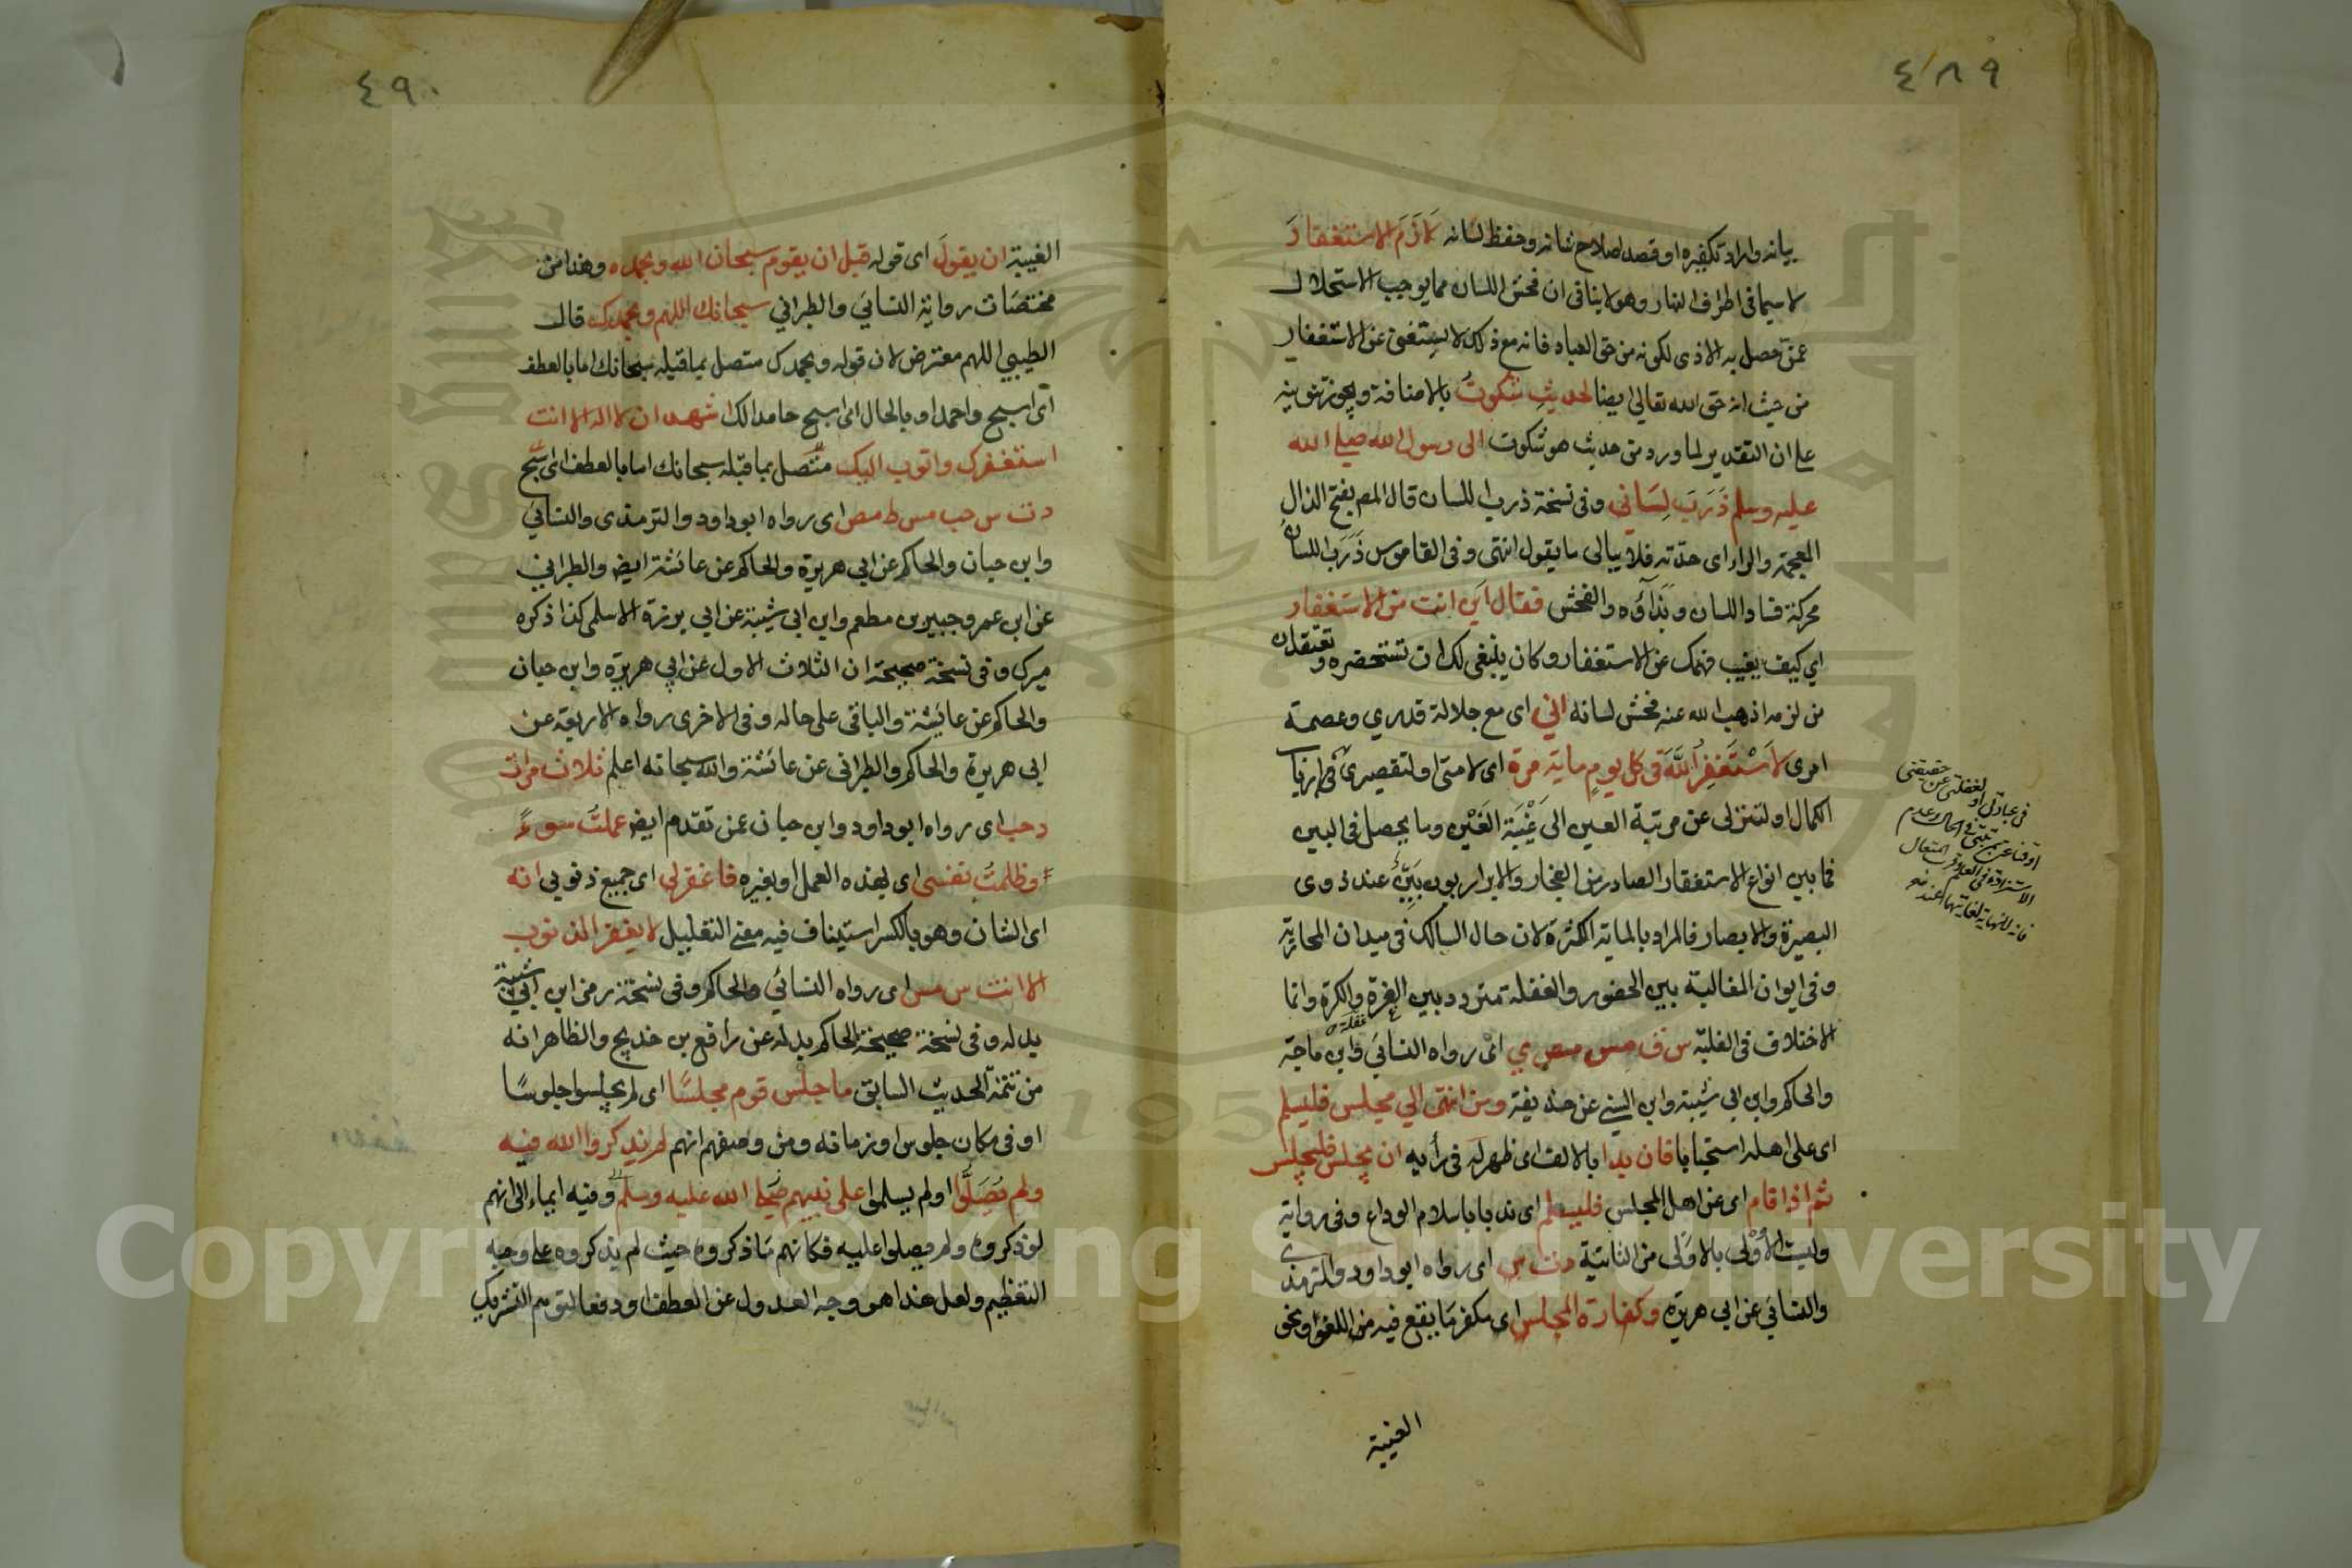 ٤٨٩
بيانه واراد تكفيره او قصد اصلاح شانه وحفظ لسانه لَازَمَ الاستغفارَ
لا سيما فى اطراف النهار وهو لا ينافى ان فحش اللسان مما يوجب الاستحلال
عمن حصل به الاذى لكونه من حق العباد فانه مع ذلك لا يستغنى عن الاستغفار
من حيث انه حق الله تعالى ايضا لحديث شكوتُ بالاضافة ويجوز تنوينه
على ان التقدير لما ورد من حديث هو شكوت الى رسول الله صلى الله
عليه وسلم ذَرَبَ لِسَانى وفى نسخة ذرب اللسان قال المص بفتح الذال
المعجمة والراء اى حدّته فلا يبالى ما يقول انتهى وفى القاموس ذَرَبُ اللسان
محركة فساد اللسان وبَذَآؤه والفحش فقال اَين انت من الاستغفار
اي كيف يغيب فهمك عن الاستغفار وكان ينبغى لك ان تستحضره وتعتقد ان
من لزمه اذهب الله عنه فحش لسانه انى اى مع جلالة قدرى وعصمة
امرى لاَسْتَغفِرُ اللَّهَ فى كل يوم ماية مرة اى لامتى او لتقصيرى فى ارتياب
الكمال او لتنزلى عن مرتبة العين الى غَيْبَة الغَيْن وما يحصل فى البين
فما بين انواع الاستغفار الصادر من الفجار والابرار بون بَيِّنٌ عند ذوى
البصيرة والابصار فالمراد بالماية الكثرة لان حال السالك فى ميدان المحاربة
وفى ايوان المغالبة بين الحضور والغفلة متردد بين الغرة والكرة وانما
غفلة
الاختلاف فى الغلبة س ق مس مص ي اى رواه النسائى وابن ماجة
والحاكم وابن ابى شيبة وابن السنى عن حذيفة ومن انتهى الى مجلس فليسلم
اى على اهله استحبابا فان بدا بالالف اى ظهر له فى رأيه ان يجلس فليجلس
ثم اذا قام اى عن اهل المجلس فليسلم اى ندبا باسلام الوداع وفى رواية
وليست الأُوْلى بالاوْلى من الثانية د ت س اى رواه ابوداود والترمذى
والنسائى عن ابى هريرة وكفارة المجلس اى مكفر مَا يقع فيه من اللغو او نحو
الغيبة
فى عبادتى او لغفلتى عن حقيقتى
٤٩٠
الغيبة ان يقولَ اى قوله قبل ان يقوم سبحان الله وبحمده وهذا من
مختصَات رواية النسائى والطبرانى سبحانك اللهم وبحمدك قال
الطيبى اللهم معترض لان قوله وبحمدك متصل بما قبله سبحانك اما بالعطف
اى اسبح واحمد او بالحال اى اسبح حامدا لك اشهد ان لا اله الا انت
استغفرك واتوب اليك متّصل بما قبله سبحانك اما بالعطف اى سبح
د ت س حب مس ط مص اى رواه ابوداود والترمذى والنسائى
وابن حبان والحاكم عن ابى هريرة والحاكم عن عائشة ايض والطبرانى
عن ابن عمر وجبير بن مطعم وابن ابى شيبة عن ابى برزة الاسلمى كذا ذكره
ميرك وفى نسخة صحيحة ان الثلاث الاول عن ابى هريرة وابن حبان
والحاكم عن عائشة والباقى على حاله وفى الاخرى رواه الاربعة عن
ابى هريرة والحاكم والطبرانى عن عائشة والله سبحانه اعلم ثلاث مرات
د حب اى رواه ابوداود وابن حبان عمن تقدم ايض عملتُ سوءً
وظلمتُ نفسى اى بهذه العمل او بغيره فاغفر لى اى جميع ذنوبى انه
اى الشان وهو بالكسر استيناف فيه معنى التعليل لا يغفر الذنوب
الا انت س مس اى رواه النسائى والحاكم وفى نسخة رمز ابن ابى شيبة
بدله وفى نسخة صحيحة الحاكم بدله عن رافع بن خديج والظاهر انه
من تتمة الحديث السابق ما جلس قوم مجلسًا اى لم يجلسوا جلوسًا
او فى مكان جلوس او زمانه ومن وصفهم انهم لم يذكروا الله فيه
ولم يُصَلُّوا او لم يسلموا على نبيهم صَلى الله عليه وسلم وفيه ايماء الى انهم
لو ذكروه ولم يصلوا عليه فكانهم مَا ذكروه حيث لم يذكروه على وجه
التعظيم ولعل هذا هو وجه العدول عن العطف او دفعا لتوهم التشريك
Copyright © King Saud University
1957